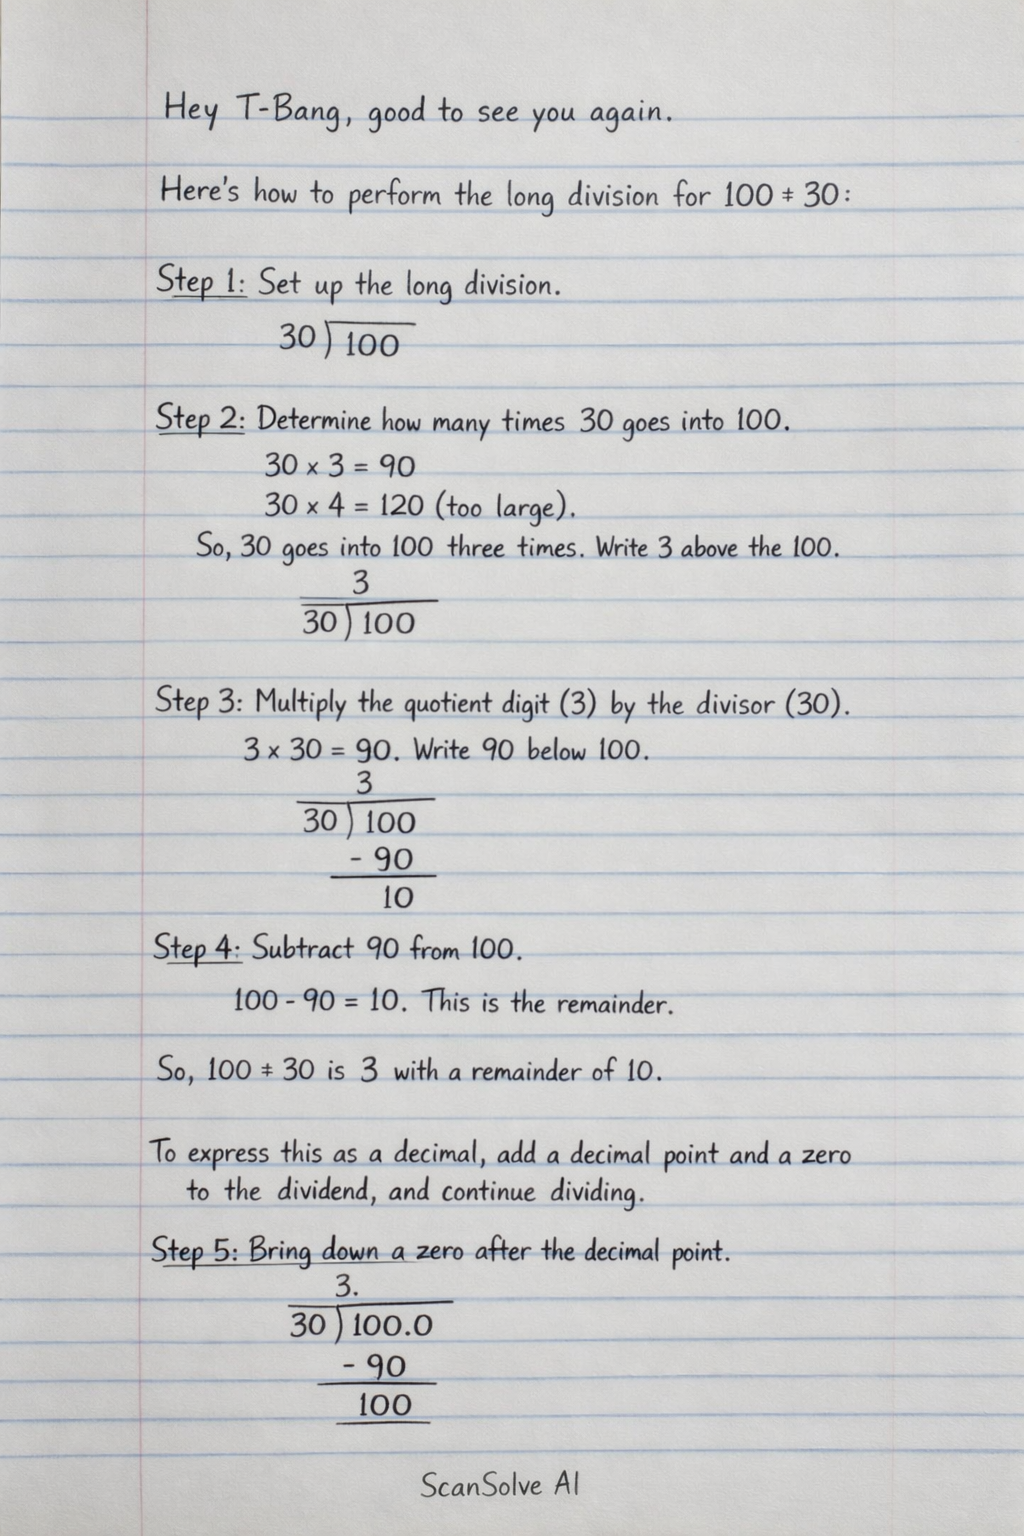 Hey T-Bang, good to see you again.
Here's how to perform the long division for 100 ÷ 30:
Step 1: Set up the long division.
30)100
Step 2: Determine how many times 30 goes into 100.
30 × 3 = 90
30 × 4 = 120 (too large).
So, 30 goes into 100 three times. Write 3 above the 100.
3
30)100
Step 3: Multiply the quotient digit (3) by the divisor (30).
3 × 30 = 90. Write 90 below 100.
3
30)100
- 90
10
Step 4: Subtract 90 from 100.
100 - 90 = 10. This is the remainder.
So, 100 ÷ 30 is 3 with a remainder of 10.
To express this as a decimal, add a decimal point and a zero
to the dividend, and continue dividing.
Step 5: Bring down a zero after the decimal point.
3.
30)100.0
- 90
100
ScanSolve AI